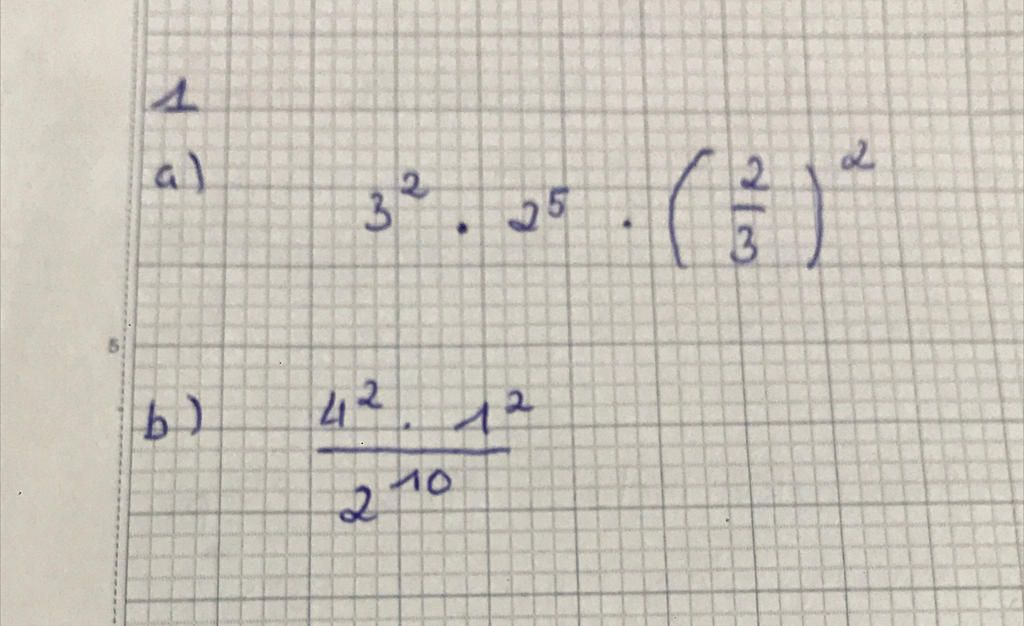 1
a) 3² · 2⁵ · (2/3)²
5
b) 4² · 1² / 2¹⁰